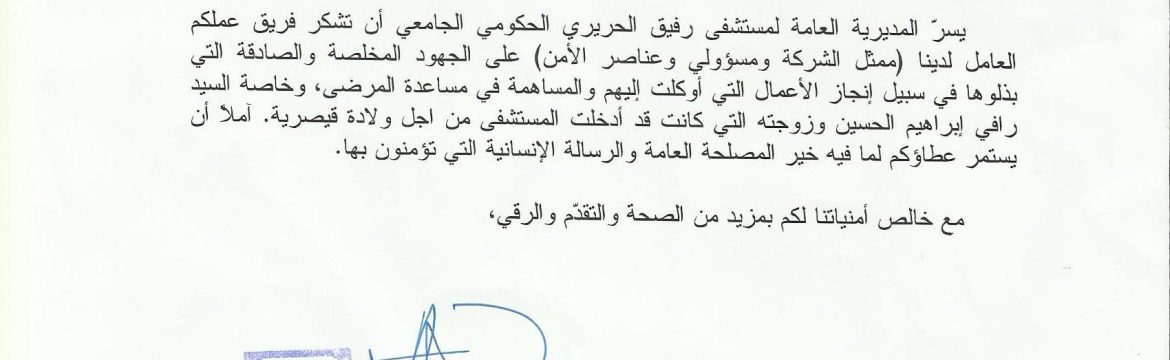 يسرّ المديرية العامة لمستشفى رفيق الحريري الحكومي الجامعي أن تشكر فريق عملكم
العامل لدينا (ممثل الشركة ومسؤولي وعناصر الأمن) على الجهود المخلصة والصادقة التي
بذلوها في سبيل إنجاز الأعمال التي أوكلت إليهم والمساهمة في مساعدة المرضى، وخاصة السيد
رافي إبراهيم الحسين وزوجته التي كانت قد أدخلت المستشفى من اجل ولادة قيصرية. آملاً أن
يستمر عطاؤكم لما فيه خير المصلحة العامة والرسالة الإنسانية التي تؤمنون بها.
مع خالص أمنياتنا لكم بمزيد من الصحة والتقدّم والرقي،